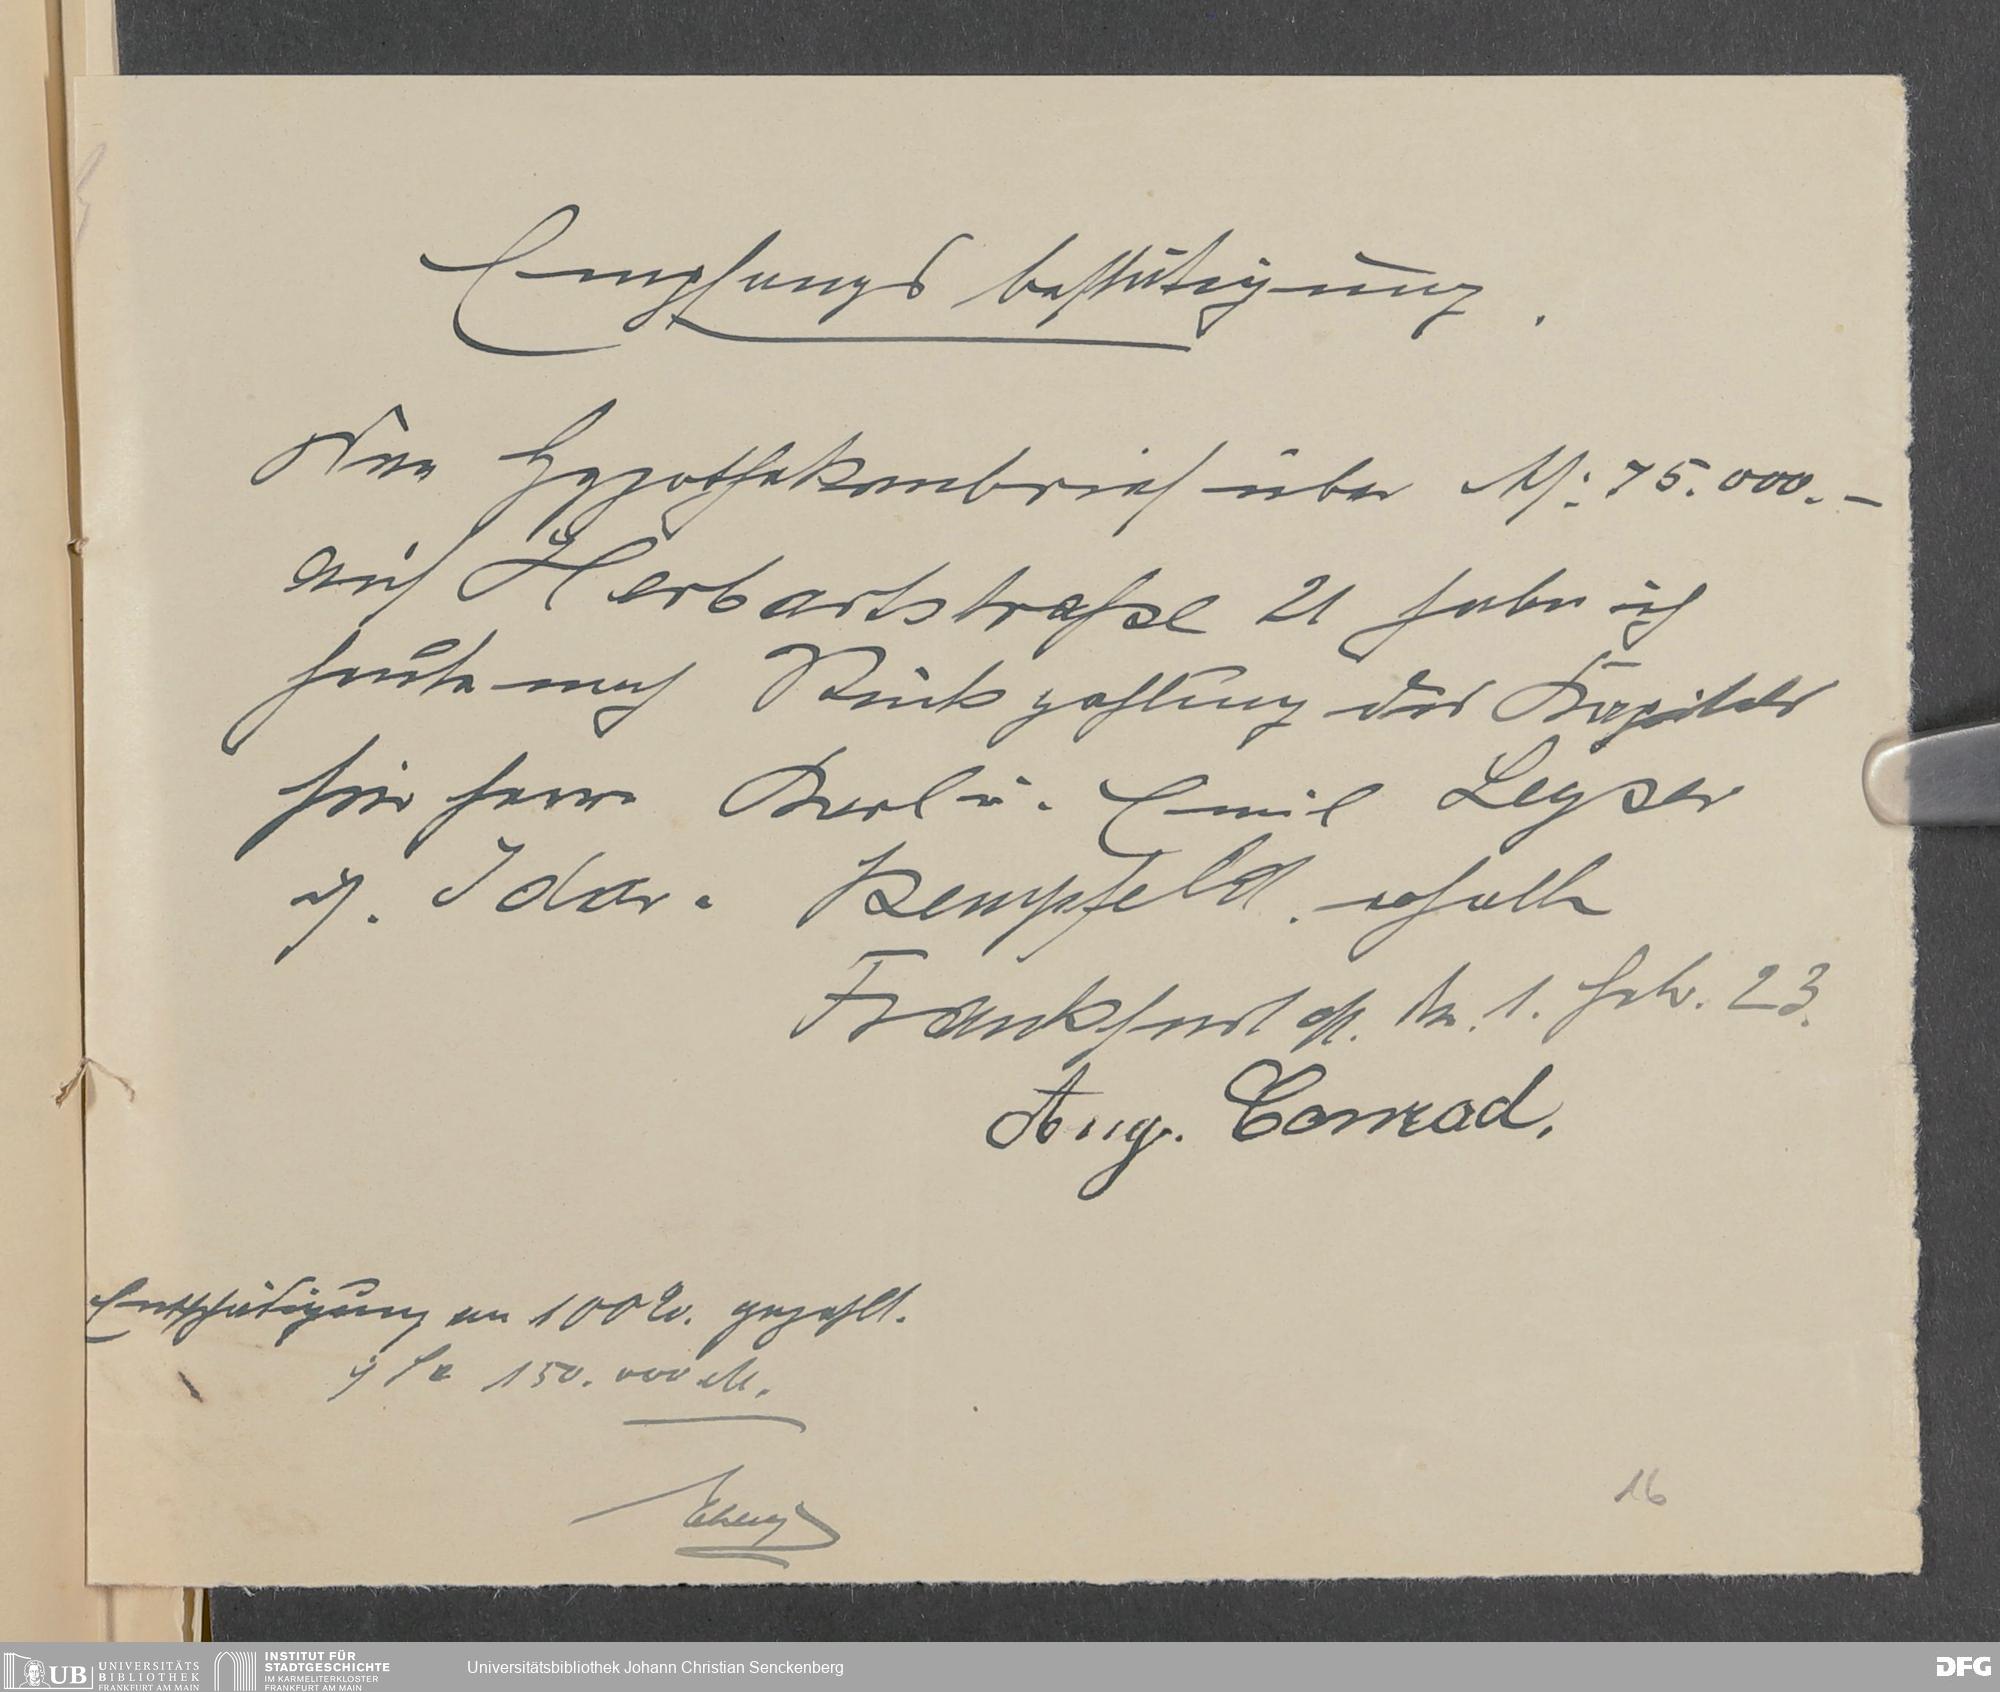 Empfangsbestätigung.
Den Hypothekenbrief über M: 75.000.–
auf Herbartstraße 21 habe ich
heute nach Rückzahlung des Kapitals
für Herrn Karl u. Emil Leyser
i/. Idar. Kempfeld. erhalten
Frankfurt a/. M. 1. Feb. 23.
Aug. Conrad.
Entschädigung an 100%. gezahlt.
150.000 M.
16
UB UNIVERSITÄTS
BIBLIOTHEK
FRANKFURT AM MAIN
INSTITUT FÜR
STADTGESCHICHTE
IM KARMELITERKLOSTER
FRANKFURT AM MAIN
Universitätsbibliothek Johann Christian Senckenberg
DFG